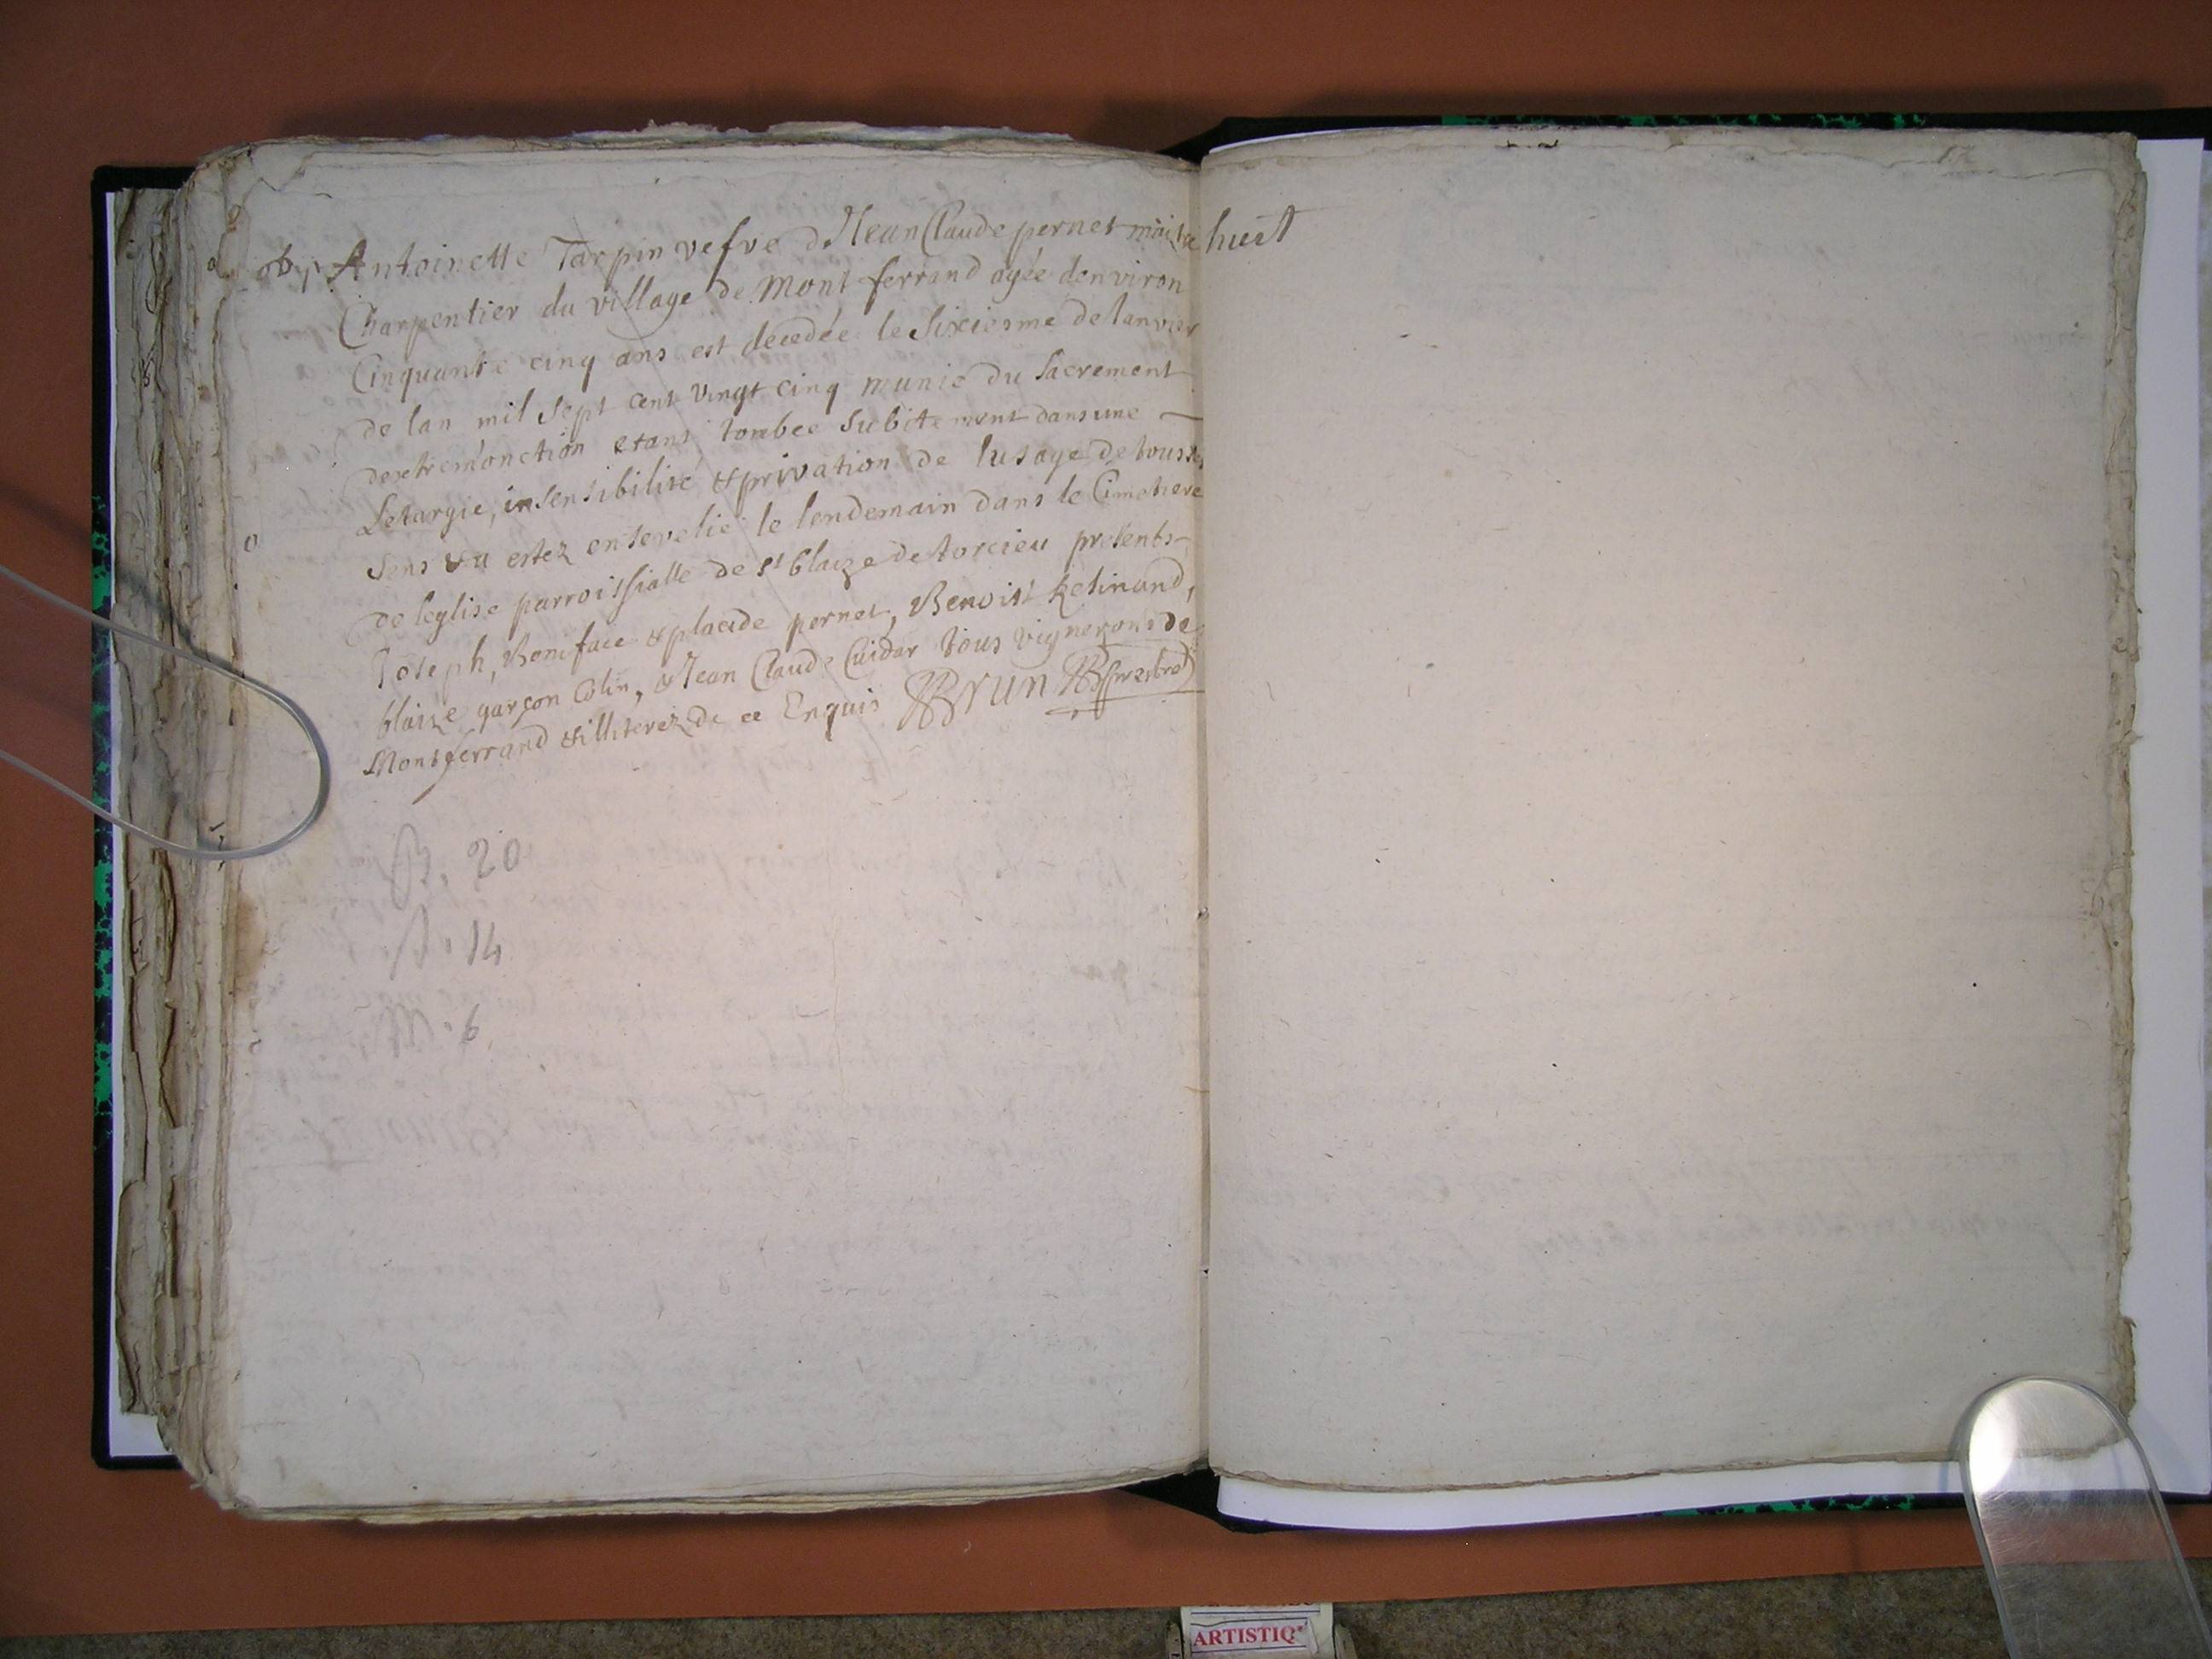 ob. Antoinette Tarpin vefve de Jean Claude pernet maitre
Charpentier du village de Mont ferrand agée denviron
Cinquante cinq ans est decedée le Sixiesme de Janvier
de lan mil Sept cent vingt cinq munie du Sacrement
dextremonction etant tombee Subitement dans une
Letargie, insensibilité & privation de lusage de tous ses
Sens & a estez ensevelie le lendemain dans le Cimetiere
de leglise parroissialle de st blaize de torcieu presents
Joseph, Boniface & placide pernet, Benoist
blaize garçon Colin, & Jean Claude Cuidar tous vignerons de
Montferrand & illiterez de ce Enquis Brun
B. 20
S. 14
M. 6
huit
17
ARTISTIQ